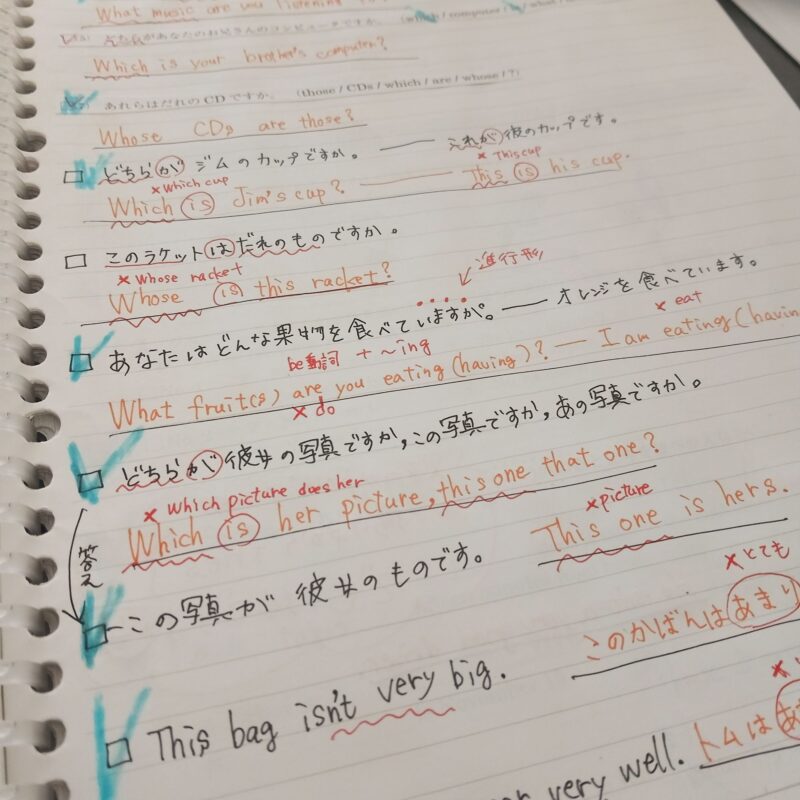 What music are you listening
Which is your brother's computer?
あれらはだれのCDですか。 (those / CDs / which / are / whose / ?)
Whose CDs are those?
どちらが ジムのカップですか。 —— これが彼のカップです。
× Which cup × This cup
Which is Jim's cup? —— This is his cup.
このラケットはだれのものですか。
× Whose racket
Whose is this racket?
進行形
あなたはどんな果物を食べていますか。 —— オレンジを食べています。
be動詞 + ~ing × eat
What fruit(s) are you eating (having)? — I am eating (havin
× do
どちらが彼女の写真ですか,この写真ですか,あの写真ですか。
× Which picture does her
Which is her picture, this one that one?
×picture
This one is hers.
答え
この写真が 彼女のものです。
×とても
This bag isn't very big. このかばんはあまり
very well. トムはあ